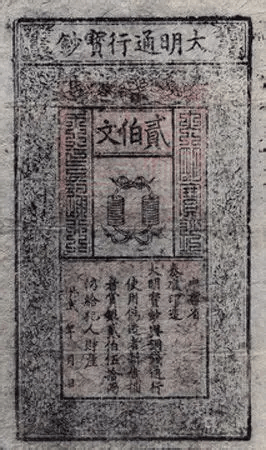 大明通行寶鈔
貳伯文
中書省
奏准印造
大明寶鈔與銅錢通行
使用偽造者斬告捕
者賞銀貳伯伍拾兩
仍給犯人財產
洪武 年 月 日